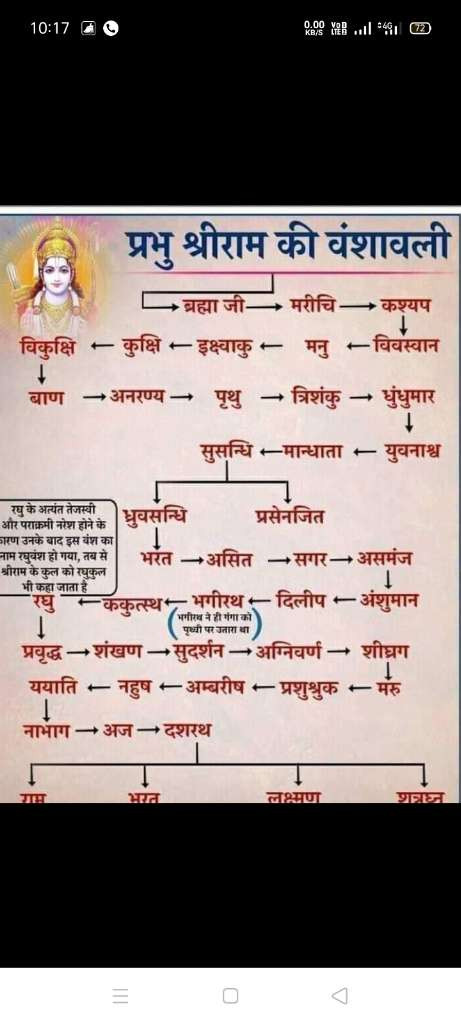 10:17
0.00 KB/S VoD LTE 4G 72
प्रभु श्रीराम की वंशावली
ब्रह्मा जी → मरीचि → कश्यप
विकुक्षि ← कुक्षि ← इक्ष्वाकु ← मनु ← विवस्वान
बाण → अनरण्य → पृथु → त्रिशंकु → धुंधुमार
सुसन्धि ← मान्धाता ← युवनाश्व
ध्रुवसन्धि प्रसेनजित
रघु के अत्यंत तेजस्वी
और पराक्रमी नरेश होने के
कारण उनके बाद इस वंश का
नाम रघुवंश हो गया, तब से
श्रीराम के कुल को रघुकुल
भी कहा जाता है
भरत → असित → सगर → असमंज
रघु ← ककुत्स्थ ← भगीरथ ← दिलीप ← अंशुमान
(भगीरथ ने ही गंगा को
पृथ्वी पर उतारा था)
प्रवृद्ध → शंखण → सुदर्शन → अग्निवर्ण → शीघ्रग
ययाति ← नहुष ← अम्बरीष ← प्रशुश्रुक ← मरु
नाभाग → अज → दशरथ
राम भरत लक्ष्मण शत्रुघ्न